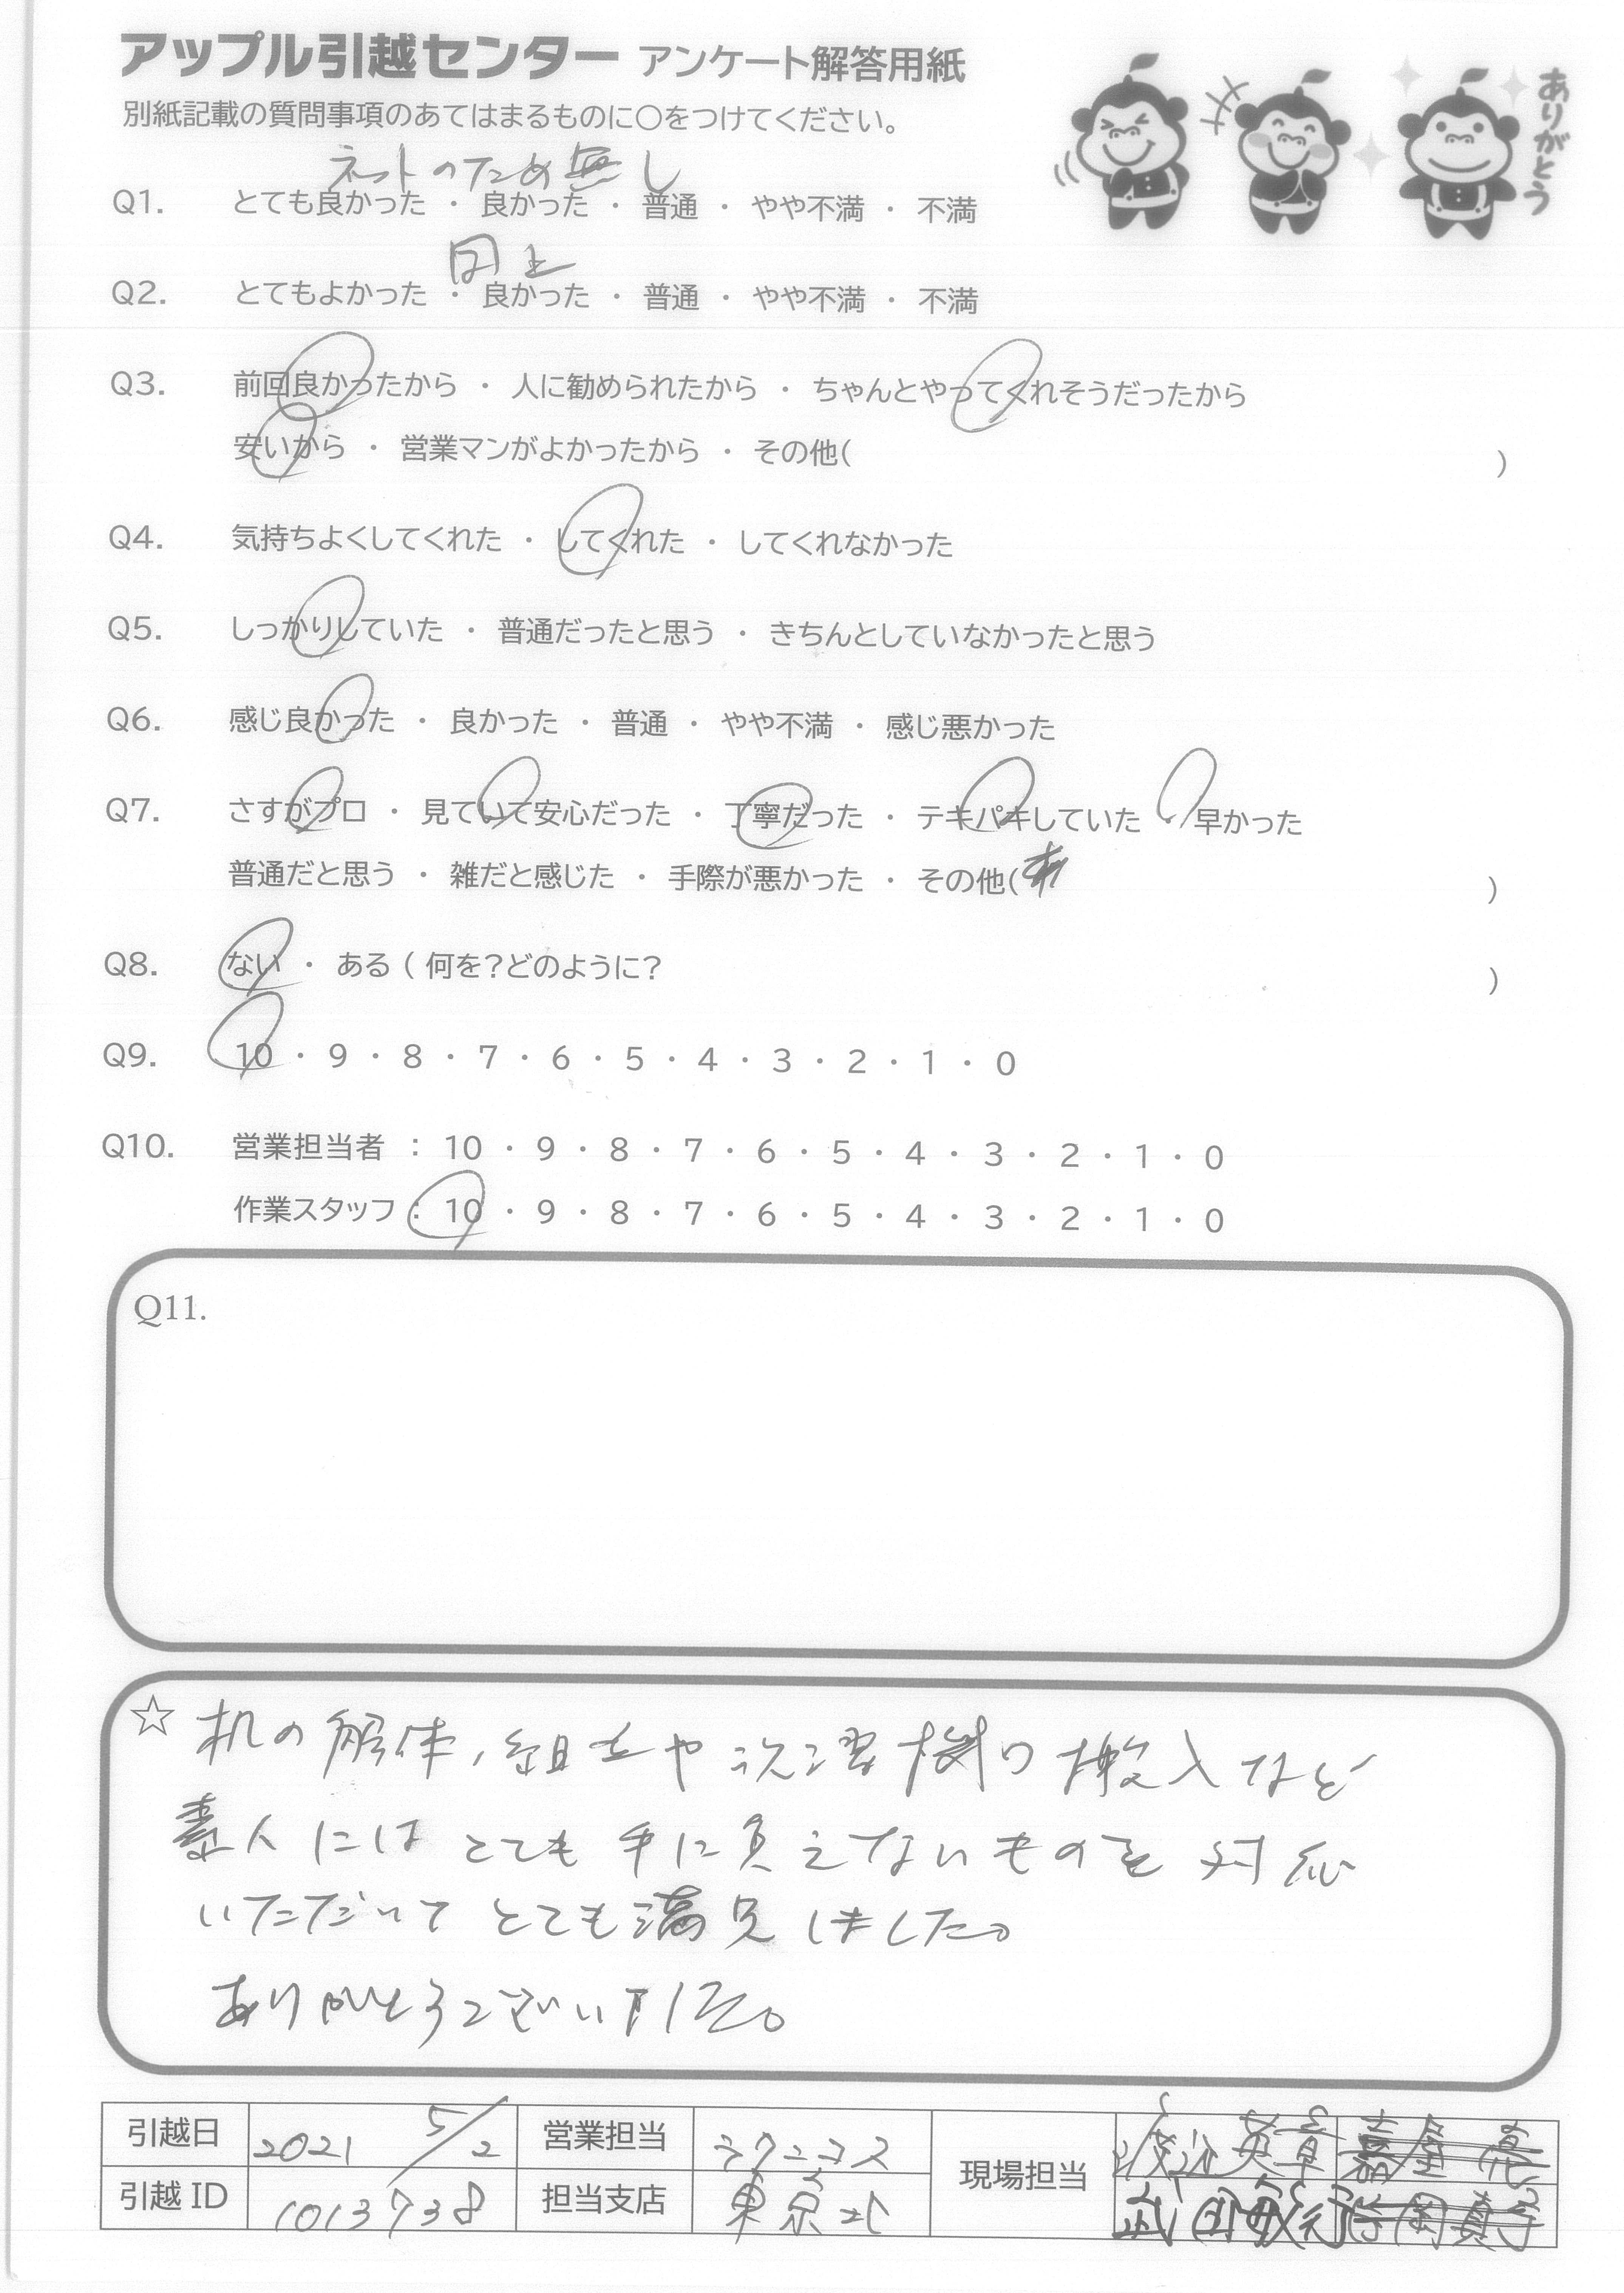 アップル引越センター アンケート解答用紙
ありがとう
別紙記載の質問事項のあてはまるものに○をつけてください。
ネットのため無し
Q1. とても良かった ・ 良かった ・ 普通 ・ やや不満 ・ 不満
同上
Q2. とてもよかった ・ 良かった ・ 普通 ・ やや不満 ・ 不満
Q3. 前回良かったから ・ 人に勧められたから ・ ちゃんとやってくれそうだったから
安いから ・ 営業マンがよかったから ・ その他( )
Q4. 気持ちよくしてくれた ・ してくれた ・ してくれなかった
Q5. しっかりしていた ・ 普通だったと思う ・ きちんとしていなかったと思う
Q6. 感じ良かった ・ 良かった ・ 普通 ・ やや不満 ・ 感じ悪かった
Q7. さすがプロ ・ 見ていて安心だった ・ 丁寧だった ・ テキパキしていた ・ 早かった
普通だと思う ・ 雑だと感じた ・ 手際が悪かった ・ その他( )
Q8. ない ・ ある ( 何を?どのように? )
Q9. 10 ・ 9 ・ 8 ・ 7 ・ 6 ・ 5 ・ 4 ・ 3 ・ 2 ・ 1 ・ 0
Q10. 営業担当者 : 10 ・ 9 ・ 8 ・ 7 ・ 6 ・ 5 ・ 4 ・ 3 ・ 2 ・ 1 ・ 0
作業スタッフ : 10 ・ 9 ・ 8 ・ 7 ・ 6 ・ 5 ・ 4 ・ 3 ・ 2 ・ 1 ・ 0
Q11.
☆ 机の解体、組立や洗濯機の搬入など
素人にはとても手に負えないものを対応
いただいてとても満足しました。
ありがとうございました。
引越日 2021 5/2 営業担当 ラクニコス 現場担当 渡辺英章
引越 ID 1013738 担当支店 東京北